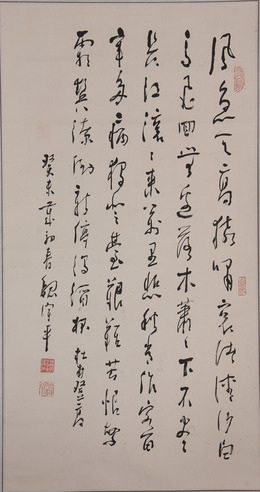 風急天高猿嘯哀渚清沙白
鳥飛回無邊落木蕭〻下不盡
長江滾〻來萬里悲秋常作客百
年多病獨登臺艱難苦恨繁
霜鬢潦倒新停濁酒杯 杜甫登高
癸未歲初春魏宇平